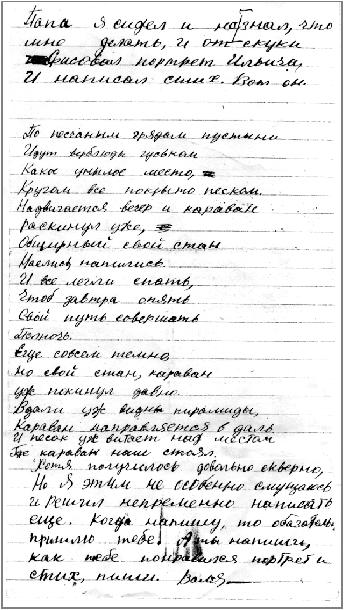 Папа я сидел и не знал, что
мне делать, и от скуки
нарисовал портрет Ильича,
И написал стих. Вот он.
По песчаным грядам пустыни
Идут верблюды гуськом
Какое унылое место,
Кругом все покрыто песком.
Надвигается вечер и караван
Раскинул уже,
Обширный свой стан
Наелись напились.
И все легли спать,
Чтоб завтра опять
Свой путь совершать
Полночь.
Еще совсем темно,
Но свой стан, караван
уж покинул давно.
Вдали уж видны пирамиды,
Караван направляется в даль
И песок уж витает над местом
Где караван наш стоял.
Хотя получилось довольно скверно,
Но я этим не особенно смущаюсь
и Решил непременно написать
еще. Когда напишу, то обязательно
пришлю тебе. А ты напиши,
как тебе понравился портрет и
стих, пиши. Валя